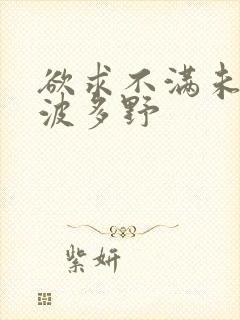 欲求不满未
波多野
紫妍